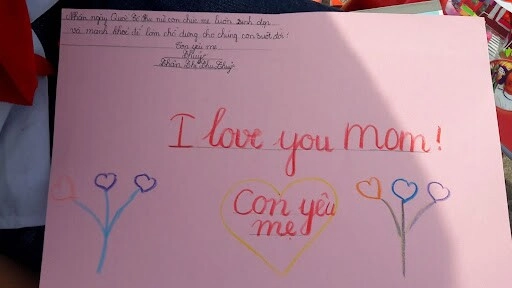 Nhân ngày Quốc tế Phụ nữ con chúc mẹ luôn xinh đẹp
và mạnh khoẻ để làm chỗ cho chúng con suốt đời!
Con yêu mẹ
Thị Thu
I love you Mom!
Con yêu
mẹ